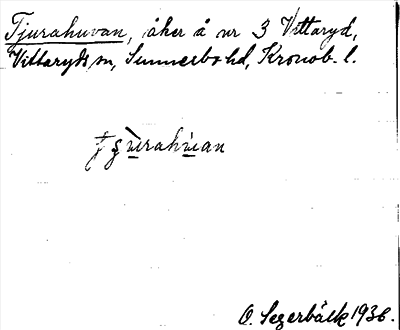 Tjurahuvan, åker å nr 3 Vittaryd,
Vittaryds sn, Sunnerbo hd, Kronob. l.
O. Segerbäck 1936.